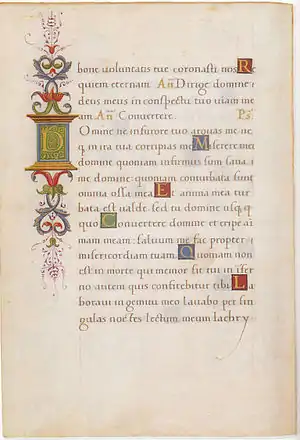 bone voluntatis tue coronasti nos. Re
quiem eternam. Añ Dirige domine
deus meus in conspectu tuo viam me
am. Añ Convertere. Ps
Domine ne in furore tuo arguas me ne
q in ira tua corripias me Miserere mei
domine quoniam infirmus sum sana
me domine quoniam conturbata sunt
omnia ossa mea Et anima mea tur
bata est valde sed tu domine usq
quo Convertere domine et eripe ani
mam meam: salvum me fac propter
misericordiam tuam. Quoniam non
est in morte qui memor sit tui in ifer
no autem quis confitebitur tibi La
boravi in gemitu meo lavabo per sin
gulas noctes lectum meum lachry